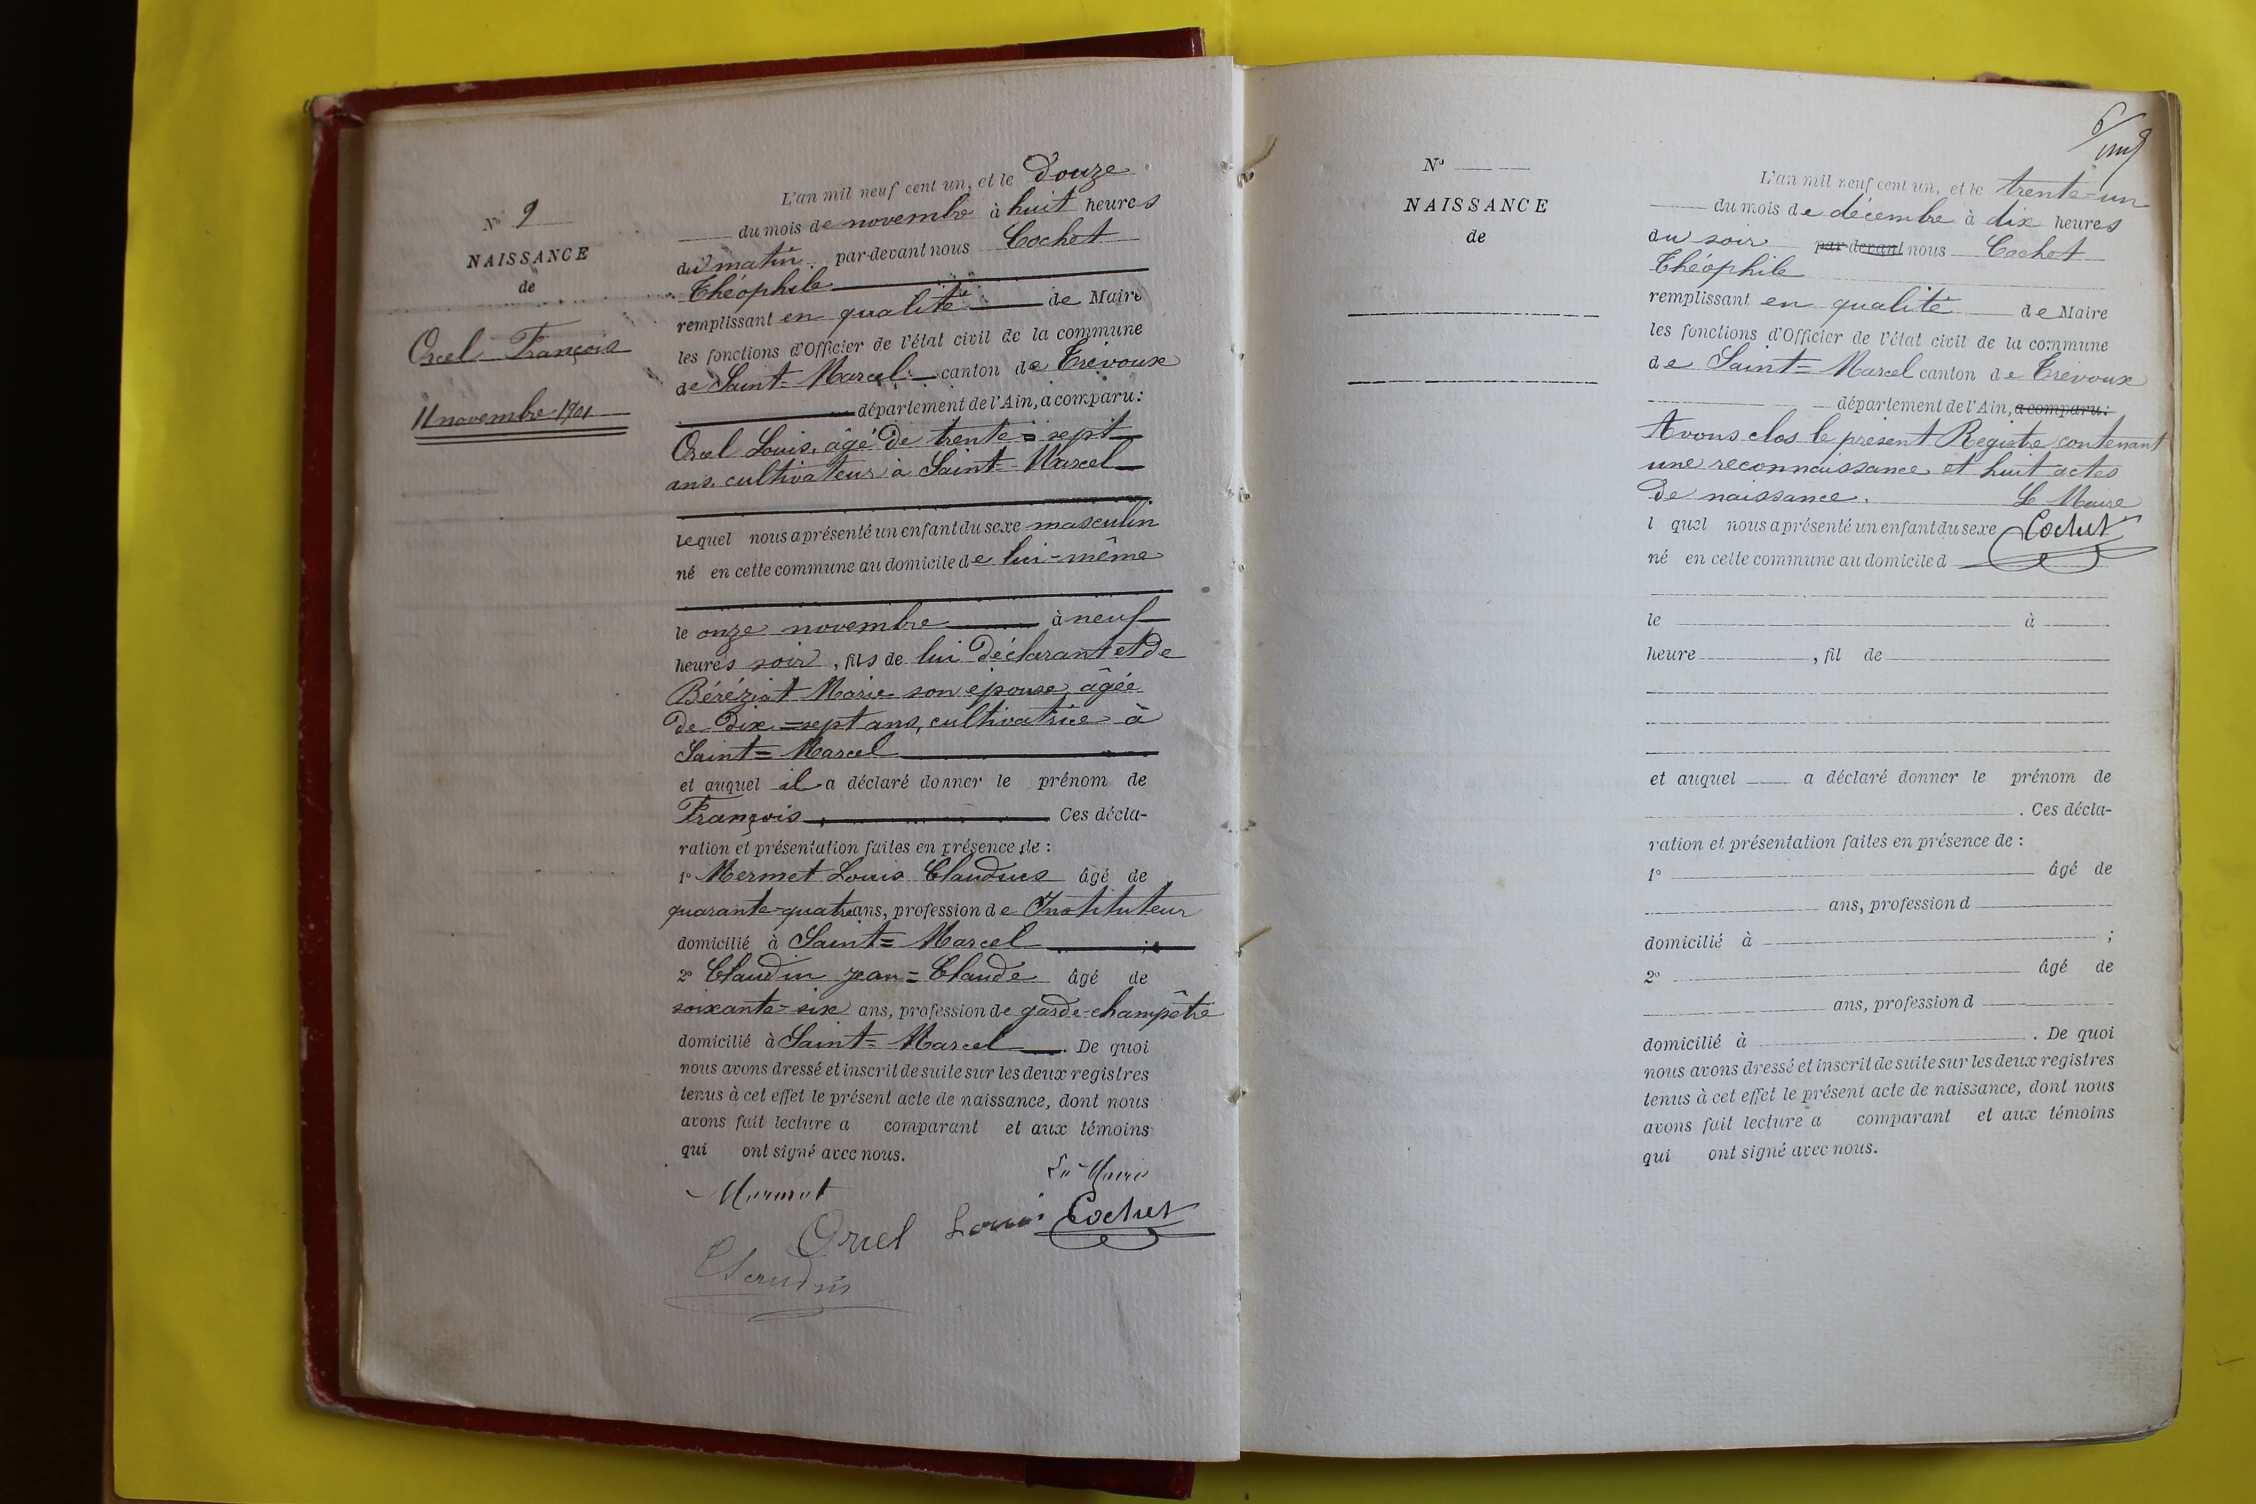 N° 9
NAISSANCE
de
Orcel François
11 novembre 1901
L'an mil neuf cent un, et le Douze
du mois de novembre à huit heures
du matin par-devant nous Cochet
Théophile
remplissant en qualité de Maire
les fonctions d'Officier de l'état civil de la commune
de Saint=Marcel canton de Trévoux
département de l'Ain, a comparu:
Orcel Louis, âgé de trente=sept
ans, cultivateur à Saint=Marcel
lequel nous a présenté un enfant du sexe masculin
né en cette commune au domicile de lui-même
le onze novembre à neuf
heures soir, fils de lui Déclarant et de
Béréziat Marie son épouse, âgée
de Dix=sept ans, cultivatrice à
Saint=Marcel
et auquel il a déclaré donner le prénom de
François. Ces décla-
ration et présentation faites en présence de :
1° Mermet Louis Claudius âgé de
quarante-quatre ans, profession de Instituteur
domicilié à Saint=Marcel ;
2° Claudin jean=Claude âgé de
soixante-six ans, profession de garde-champêtre
domicilié à Saint=Marcel. De quoi
nous avons dressé et inscrit de suite sur les deux registres
tenus à cet effet le présent acte de naissance, dont nous
avons fait lecture a comparant et aux témoins
qui ont signé avec nous.
Le Maire
Mermet
Orcel Louis Cochet
Claudin
N°
NAISSANCE
de
L'an mil neuf cent un, et le trente-un
du mois de décembre à dix heures
du soir par devant nous Cochet
Théophile
remplissant en qualité de Maire
les fonctions d'Officier de l'état civil de la commune
de Saint=Marcel canton de Trévoux
département de l'Ain, a comparu:
Avons clos le présent Registre contenant
une reconnaissance et huit actes
de naissance. Le Maire
l quel nous a présenté un enfant du sexe Cochet
né en cette commune au domicile d
le à
heure , fil de
et auquel a déclaré donner le prénom de
. Ces décla-
ration et présentation faites en présence de :
1° âgé de
ans, profession d
domicilié à ;
2° âgé de
ans, profession d
domicilié à . De quoi
nous avons dressé et inscrit de suite sur les deux registres
tenus à cet effet le présent acte de naissance, dont nous
avons fait lecture a comparant et aux témoins
qui ont signé avec nous.